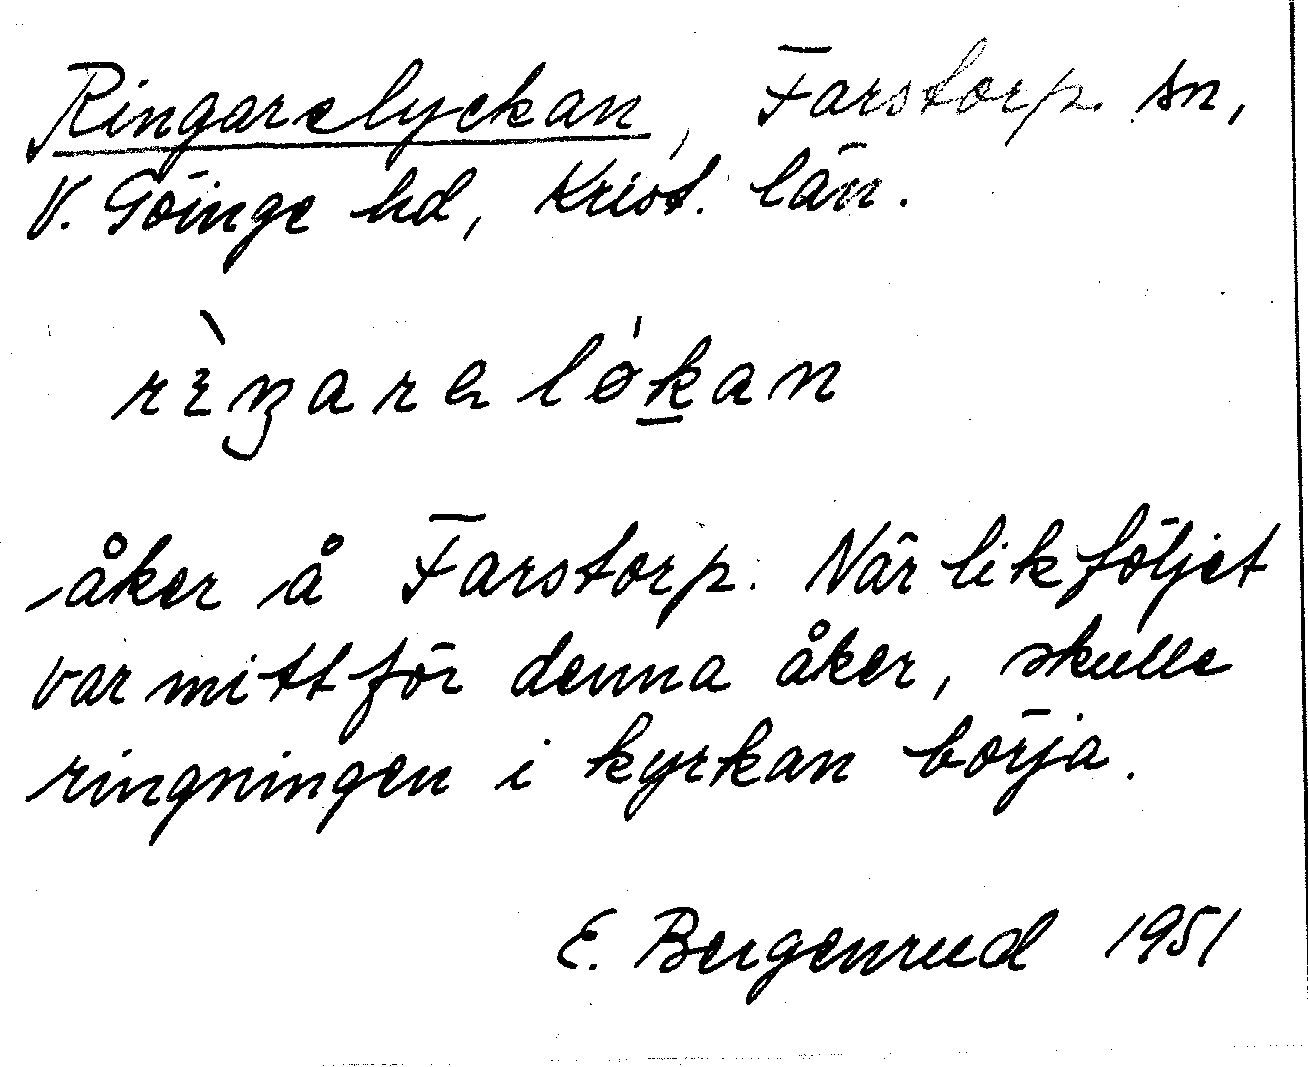 Ringarelyckan, Farstorp sn,
V. Göinge hd, Krist. län.
rɛ̀ŋarɐ lø'k̲an
åker å Farstorp. När likföljet
var mitt för denna åker, skulle
ringningen i kyrkan börja.
E. Bergenrud 1951